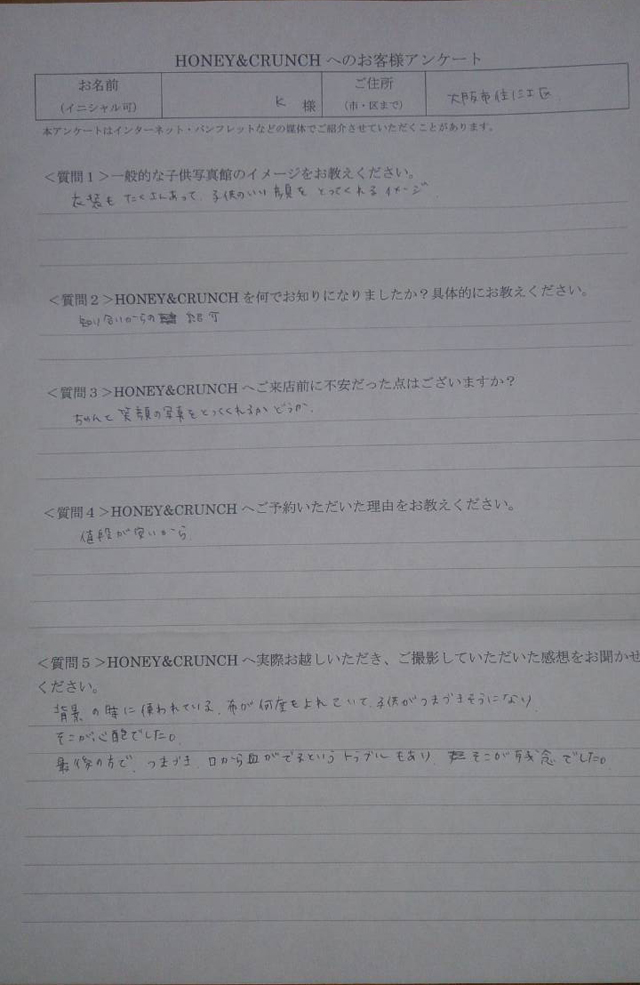 HONEY&CRUNCH へのお客様アンケート
お名前
(イニシャル可)
K 様
ご住所
(市・区まで)
大阪市住江区
本アンケートはインターネット・パンフレットなどの媒体でご紹介させていただくことがあります。
＜質問１＞一般的な子供写真館のイメージをお教えください。
衣装も たくさんあって、子供のいい顔を とってくれる イメージ.
＜質問２＞HONEY&CRUNCH を何でお知りになりましたか？具体的にお教えください。
知り合いからの 紹介
＜質問３＞HONEY&CRUNCH へご来店前に不安だった点はございますか？
ちゃんと 笑顔の写真をとってくれるか どうか.
＜質問４＞HONEY&CRUNCH へご予約いただいた理由をお教えください。
値段が安いから
＜質問５＞HONEY&CRUNCH へ実際お越しいただき、ご撮影していただいた感想をお聞かせ
ください。
背景 の時に 使われている、布が 何度もよれていて、子供がつまづきそうになり
そこが、心配でした。
最後の方で、つまづき、口から血がでるという トラブルもあり、そこが 残念 でした。